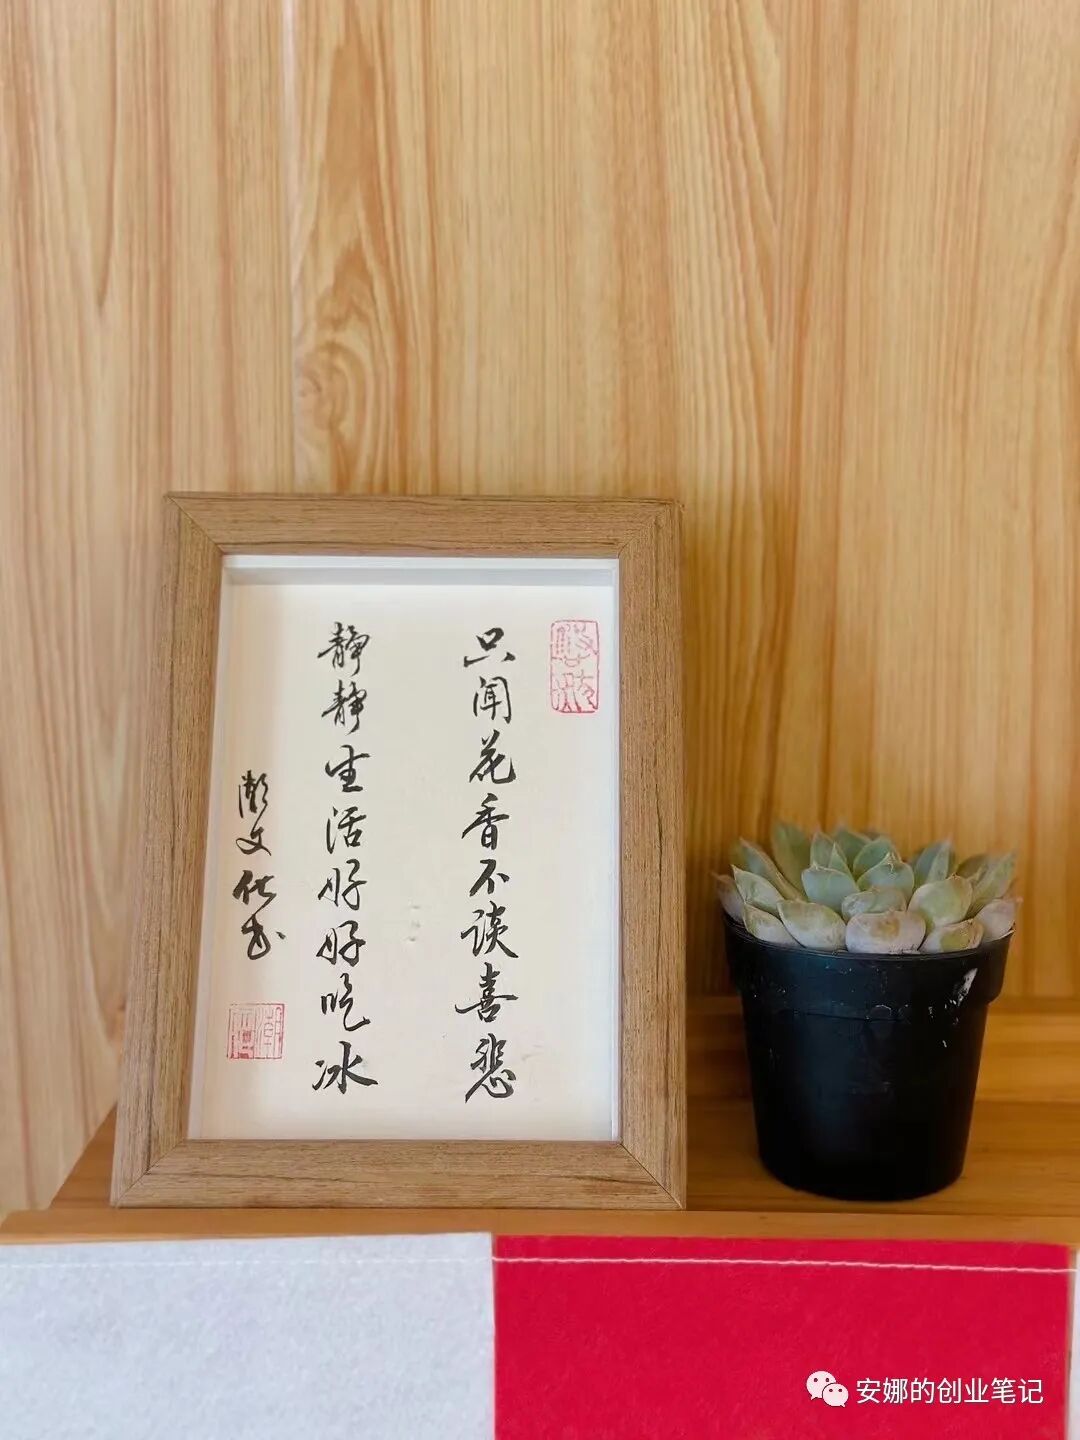 只闻花香不谈喜悲
静静生活好好吃冰
文化书
安娜的创业笔记